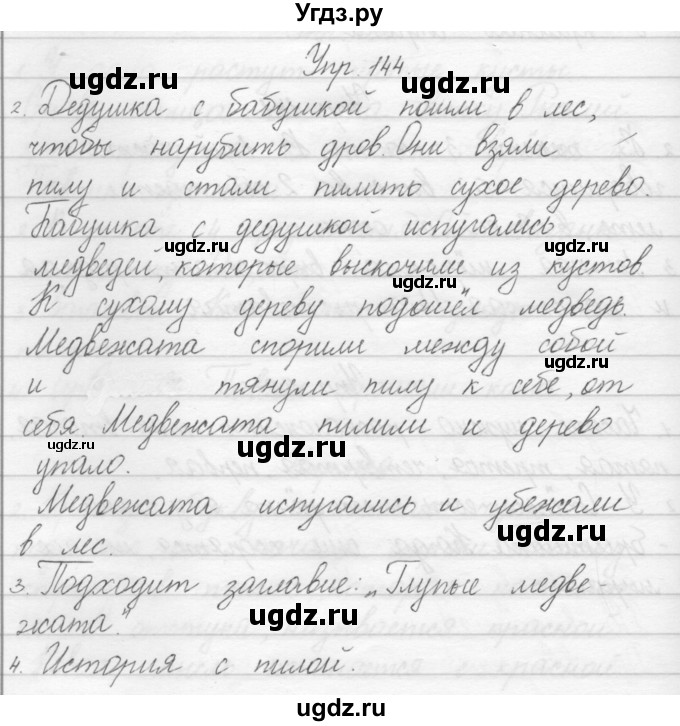 Угдз.ру
Упр. 144.
2. Дедушка с бабушкой пошли в лес,
чтобы нарубить дров. Они взяли
пилу и стали пилить сухое дерево.
Бабушка с дедушкой испугались
медведей, которые выскочили из кустов.
К сухому дереву подошёл медведь.
Медвежата спорили между собой
и тянули пилу к себе, от
себя. Медвежата пилили и дерево
упало.
Медвежата испугались и убежали
в лес.
3. Подходит заглавие: „Глупые медве-
жата".
4. История с пилой.
ugdz.ru
ugdz.ru
ugdz.ru
ugdz.ru
ugdz.ru
ugdz.ru
ugdz.ru
ugdz.ru
ugdz.ru
ugdz.ru
ugdz.ru
ugdz.ru
ugdz.ru